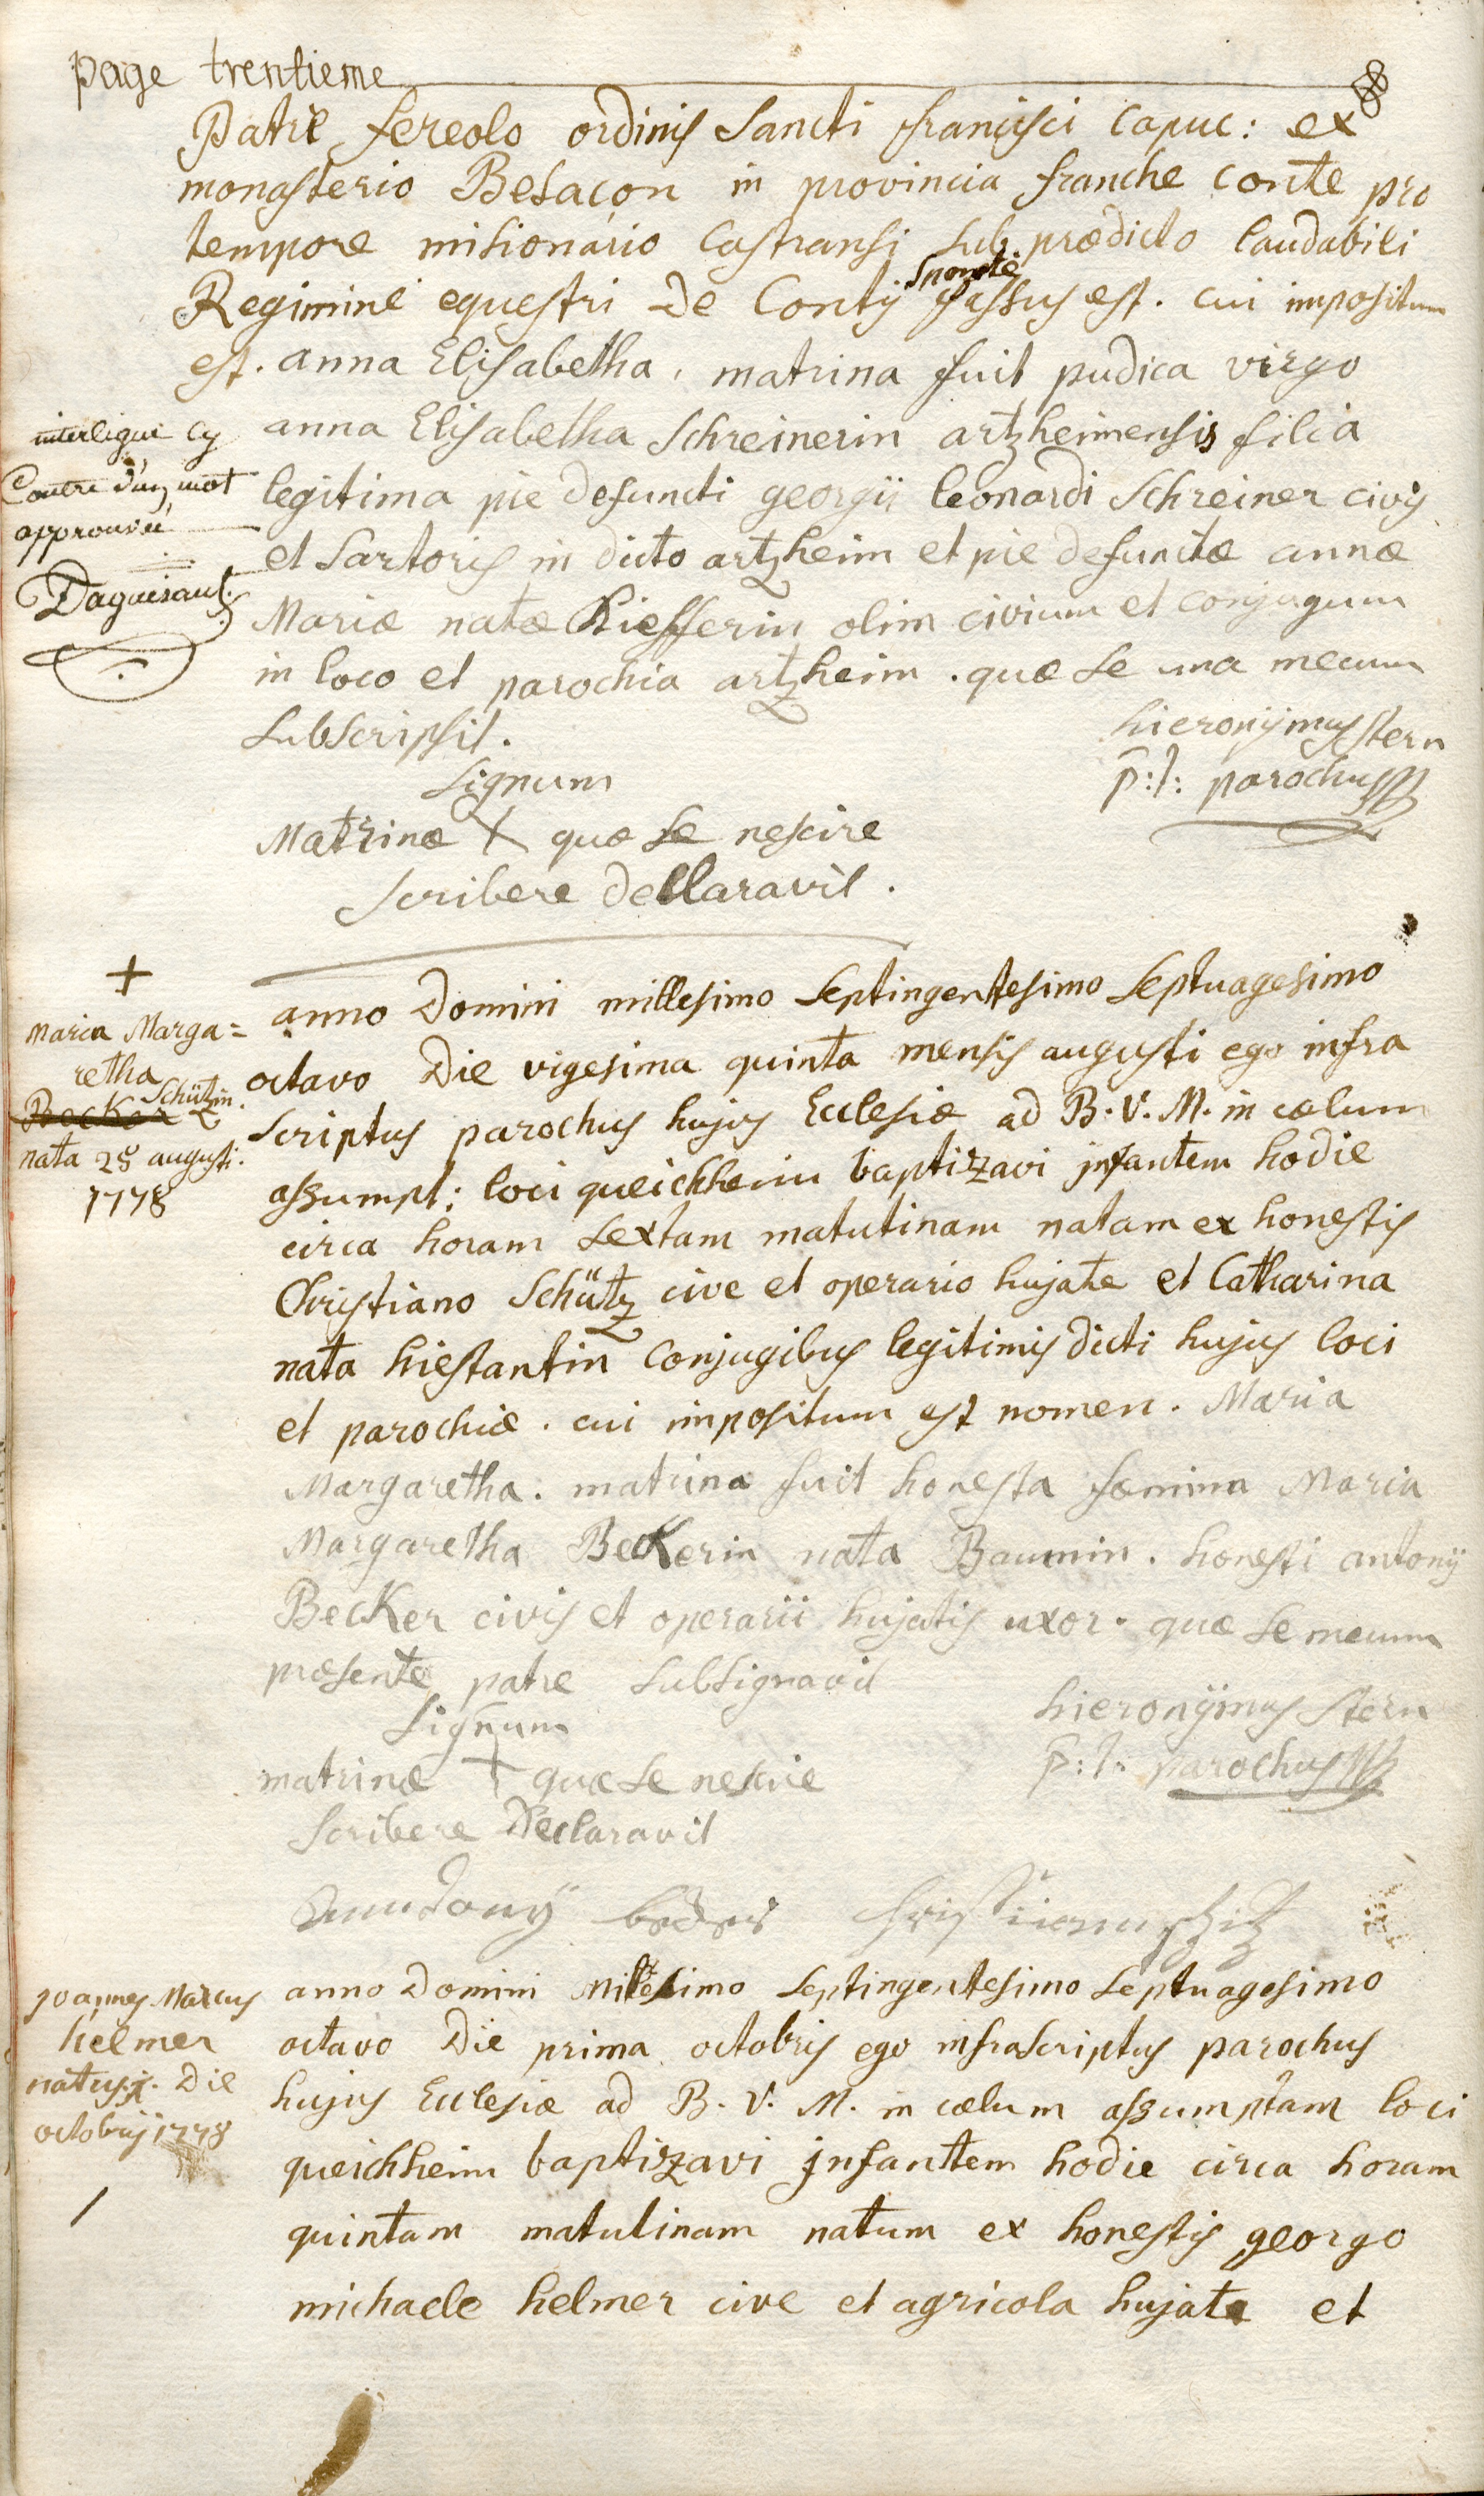 page trentieme
Patre fereolo ordinis Sancti francisci capuc: ex
monasterio Besaçon in provincia franche conte pro
tempore misionario Castransi sub prædicto laudabili
Sponte
Regimine equestri de Contÿ fassus est. cui impositum
est. anna Elisabetha, matrina fuit pudica virgo
anna Elisabetha Schreinerin artzheimensis filia
legitima pie defuncti georgii leonardi Schreiner civis
et Sartoris in dicto artzheim et pie defunctæ annæ
Mariæ natæ Kiefferin olim civium et conjugum
in loco et parochia artzheim. quæ se una mecum
Subscripsit.
hieronÿmus Stern
p:t: parochus
Signum
Matrinæ + quæ se nescire
Scribere dellaravit.
interligne cy
Contre d'un mot
approuvée
Daguesaut
+
Maria Marga=
retha
Schützin.
Becker
nata 25 augusti.
1778
anno Domini millesimo Septingentesimo Septuagesimo
octavo Die vigesima quinta mensis augusti ego infra
scriptus parochus hujus Ecclesiæ ad B. V. M. in cælum
assumpt: loci queichheim baptizavi jnfantem hodie
circa horam Sextam matutinam natam ex honestis
Christiano Schütz cive et operario hujate et Catharina
nata hiestantin Conjugibus legitimis dicti hujus loci
et parochiæ. cui impositum est nomen. Maria
Margaretha. matrina fuit honesta fœmina Maria
Margaretha BecKerin nata Baumin. honesti antonÿ
BecKer civis et operarii hujatis uxor. quæ se mecum
præsente patre Subsignavit
hieronÿmus Stern
p:t: parochus
Signum
matrinæ + quæ se nescire
Scribere Declaravit
joannes Marcus
helmer
natus j. Die
octobris 1778
anno Domini Millesimo Septingentesimo Septuagesimo
octavo Die prima octobris ego infrascriptus parochus
hujus Ecclesiæ ad B. V. M. in cælum assumptam loci
queichheim baptizavi jnfantem hodie circa horam
quintam matutinam natum ex honestis georgo
michaele helmer cive et agricola hujate et